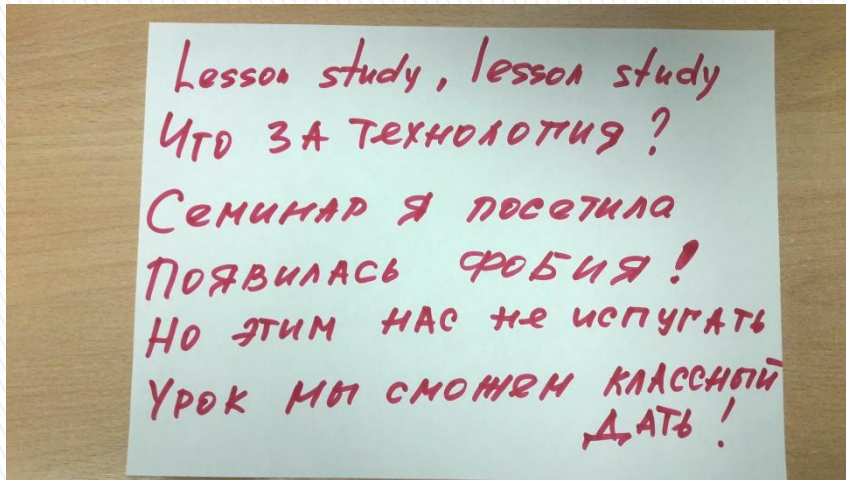 Lesson study, lesson study
Что за технология?
Семинар я посетила
Появилась фобия!
Но этим нас не испугать
Урок мы сможем классный
дать!